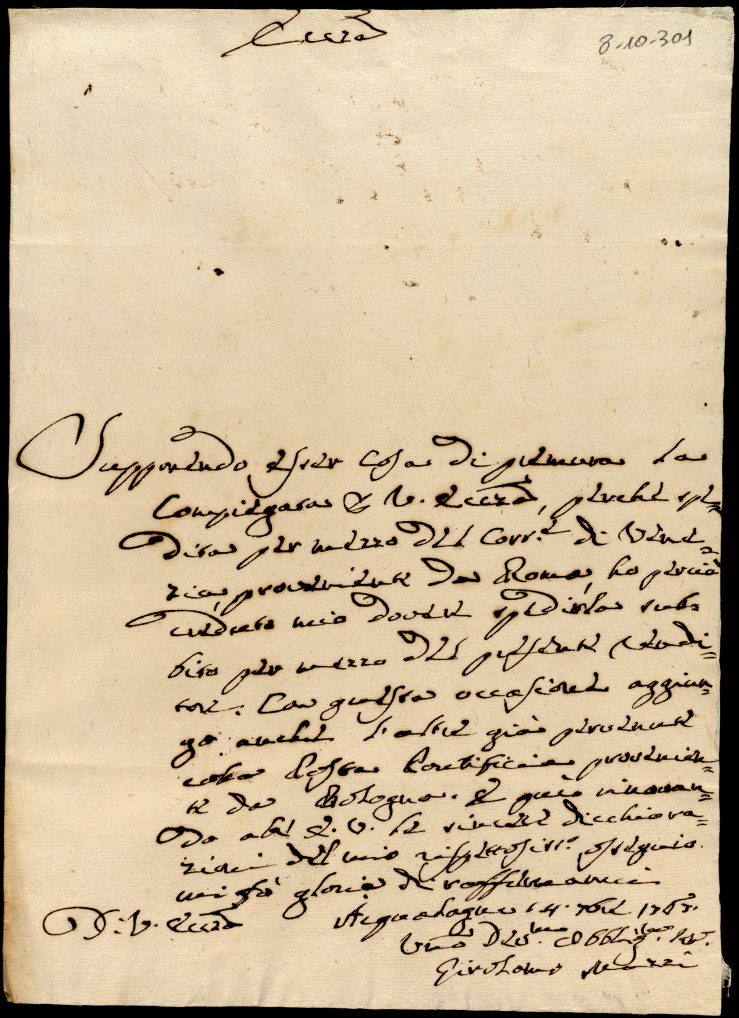 Eccza
8-10-301
Supponendo esser cosa di premura la
Compiegata p V. Eccza, perché spe=
dita per mezzo del Corr.e di Vene=
zia, proveniente da Roma, ho perciò
creduto mio dovere spedirla sub=
bito per mezzo del presente
tore. Con questa occasione aggiun=
go anche l'altre già pervenute
colla Posta Pontificia provenien=
te da Bologna. E quì rinovan=
do all'E. V. le sincere dicchiara=
zioni del mio rispettosiss.o ossequio
mi fò gloria di raffermarmi
Di V. Eccza Acqualagna 14. 7bre 1767.
Umo Devmo Obbligmo Ser.
Girolamo